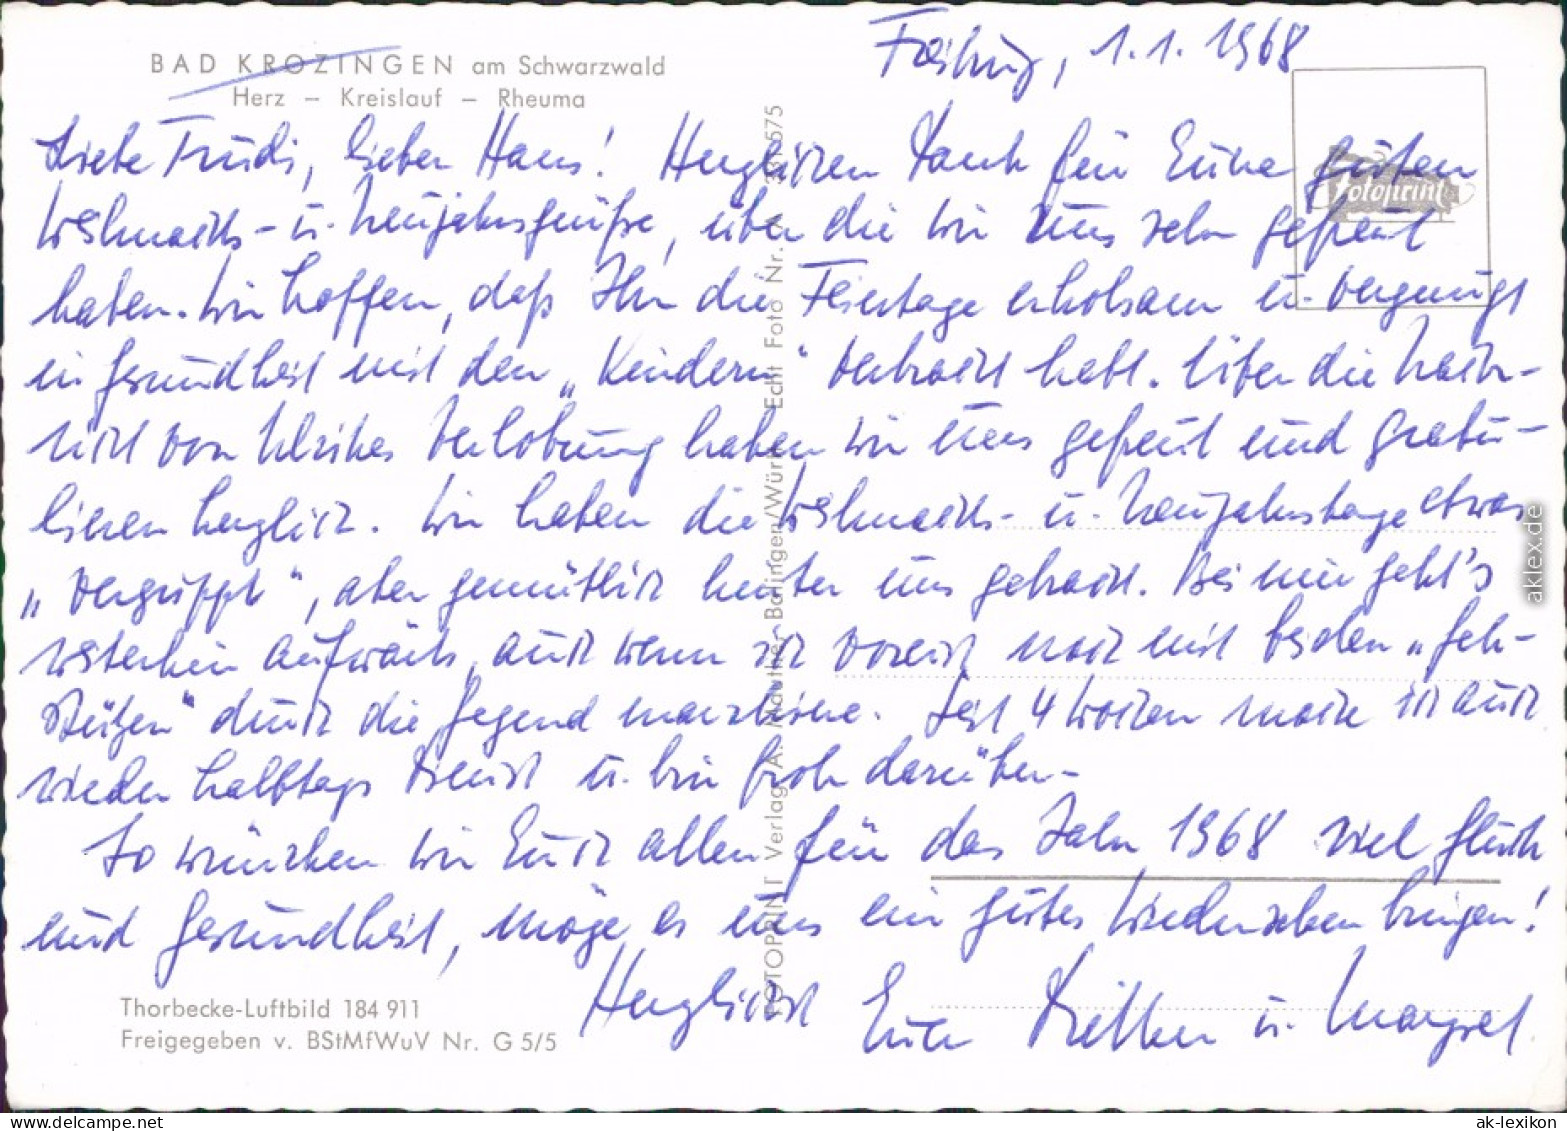 BAD KROZINGEN am Schwarzwald
Herz – Kreislauf – Rheuma
Freiburg, 1.1.1968
Fotoprint
Liebe Trudi, lieber Hans! Herzlichen Dank für Eure guten
Weihnachts- u. Neujahrsgrüße, über die wir uns sehr gefreut
haben. Wir hoffen, daß Ihr die Feiertage erholsam u. vergnügt
in Gesundheit mit den „Kindern“ verbracht habt. Über die Nach-
richt von Ulrikes Verlobung haben wir uns gefreut und gratu-
lieren herzlich. Wir haben die Weihnachts- u. Neujahrstage etwas
„vergrippt“, aber gemütlich hinter uns gebracht. Bei mir geht's
weiterhin aufwärts, auch wenn ich vorerst noch mit beiden „Geh-
stützen“ durch die Gegend marschiere. Seit 4 Wochen mache ich auch
wieder halbtags Dienst u. bin froh darüber.-
So wünschen wir Euch allen für das Jahr 1968 viel Glück
und Gesundheit, möge es uns ein gutes Wiedersehen bringen!
Herzlichst Eure u. Margret.
Thorbecke-Luftbild 184 911
Freigegeben v. BStMfWuV Nr. G 5/5
FOTOPRINT Verlag A. Mauthe, Balingen/Württ. Echt Foto Nr.
aklex.de
www.delcampe.net
ak-lexikon